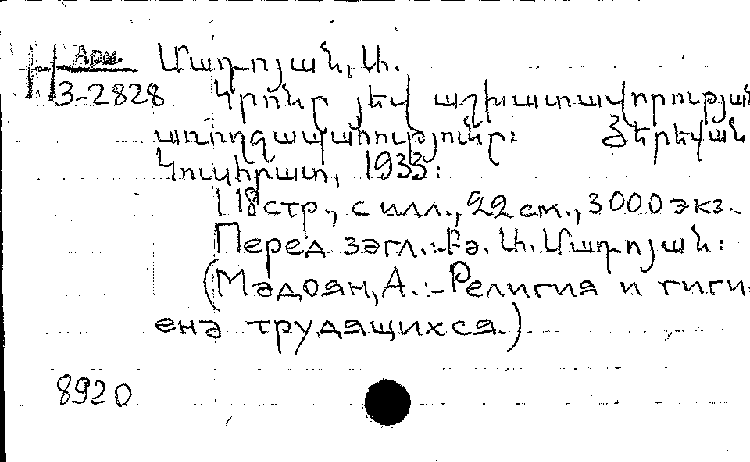 Арм.
3-2828
Մադոյան, Ա.
Կրոնը յեվ աշխատավորության
առողջապահությունը: Յերեվան
Կուսհրատ, 1933:
118 стр., с илл., 22 см., 3000 экз.
Перед загл.: Ա. Մադոյան:
(Мадоян, А. - Религия и гиги-
ена трудящихся.)
8920